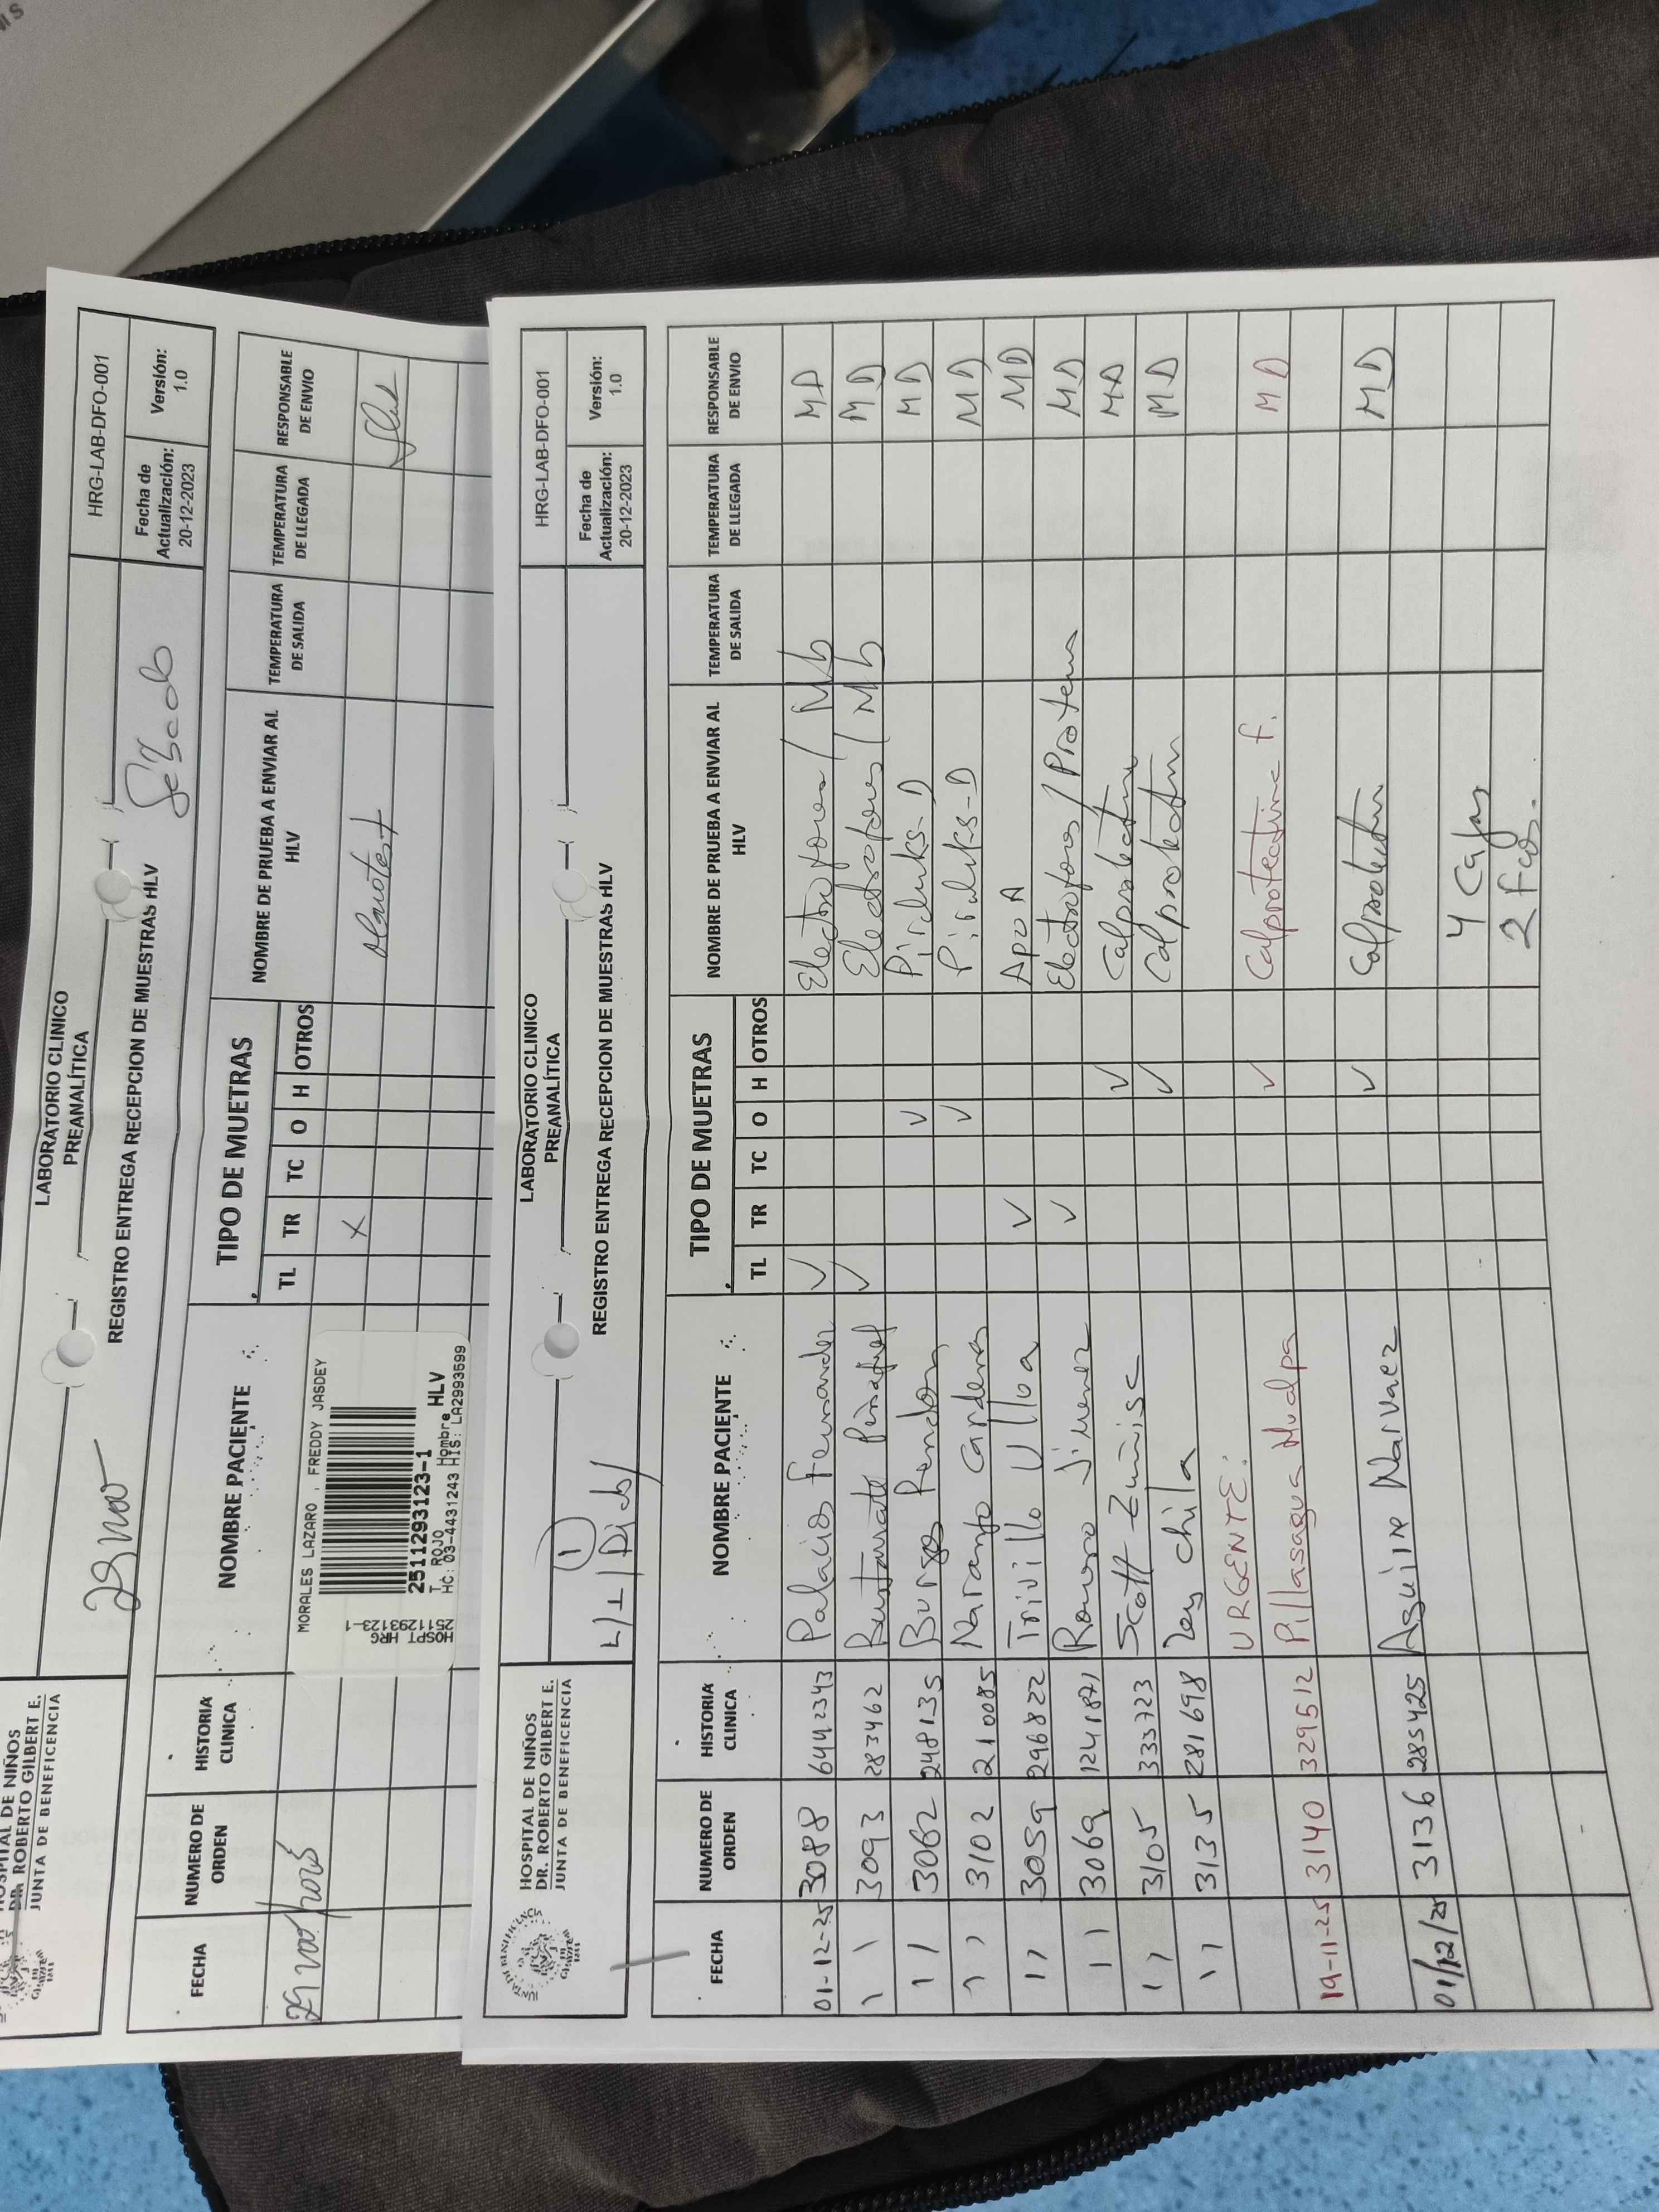 HOSPITAL DE NIÑOS
DR. ROBERTO GILBERT E.
JUNTA DE BENEFICENCIA
LABORATORIO CLINICO
PREANALÍTICA
HRG-LAB-DFO-001
REGISTRO ENTREGA RECEPCION DE MUESTRAS HLV
Fecha de Actualización: 20-12-2023
Versión: 1.0
29 nov
Sábado
FECHA NUMERO DE ORDEN HISTORIA CLINICA NOMBRE PACIENTE TIPO DE MUETRAS NOMBRE DE PRUEBA A ENVIAR AL HLV TEMPERATURA DE SALIDA TEMPERATURA DE LLEGADA RESPONSABLE DE ENVIO
TL TR TC O H OTROS
29 nov X
MORALES LAZARO , FREDDY JASDEY
2511293123-1
T. ROJO Hombre HLV
HC: 03-4431243 HIS: LA2993599
HOSPT HRG
2511293123-1
HOSPITAL DE NIÑOS
DR. ROBERTO GILBERT E.
JUNTA DE BENEFICENCIA
LABORATORIO CLINICO
PREANALÍTICA
HRG-LAB-DFO-001
REGISTRO ENTREGA RECEPCION DE MUESTRAS HLV
Fecha de Actualización: 20-12-2023
Versión: 1.0
1
FECHA NUMERO DE ORDEN HISTORIA CLINICA NOMBRE PACIENTE TIPO DE MUETRAS NOMBRE DE PRUEBA A ENVIAR AL HLV TEMPERATURA DE SALIDA TEMPERATURA DE LLEGADA RESPONSABLE DE ENVIO
TL TR TC O H OTROS
01-12-25 3088 6442343 Palacio Fernandez ✓ Electrofores / Mb MD
" 3093 283462 Bustamante Peñafiel ✓ Electrofores / Mb MD
" 3062 248135 Burgos Rendon ✓ Piriluks-D MD
" 3102 210085 Naranjo Cardenas ✓ Piriluks-D MD
" 3059 296822 Trivillo Ulloa ✓ Apo A MD
" 3069 1241871 Romero Jimenez ✓ Electrofores / Proteina MD
" 3105 333723 Scott Zuñiga ✓ Calprotectina MD
" 3135 281698 chila ✓ Calprotectina MD
URGENTE:
19-11-25 3140 329512 Pillasagua Hualpa ✓ Calprotectina f. MD
01/12/25 3136 285425 Aguirre Narvaez ✓ Calprotectin MD
4 Cajas
2 Fcos.